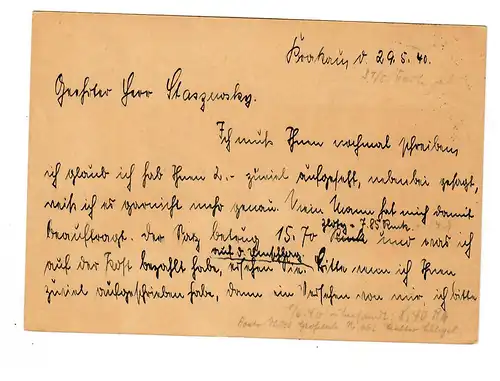 Krakau, d. 29.5.40.
Geehrter Herr Stasznosky.
Ich muß Ihnen nochmal schreiben,
ich glaub ich hab Ihnen 2.- zuviel aufgesetzt, nebenbei gesagt,
weiß ich es garnicht mehr genau. Mein Mann hat mich damit
Zloty = 7.85 Rmk.
beauftragt. Der Satz betrug 15.70 und was ich
auf der Post bezahlt habe, ersehen Sie. Bitte wenn ich Ihnen
zuviel aufgeschrieben habe, dann ein Versehen von mir, ich bitte